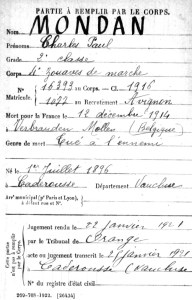 PARTIE À REMPLIR PAR LE CORPS.
Nom MONDAN
Prénoms Charles Paul
Grade 2e classe
Corps 4e Zouaves de marche
N° 16393 au Corps. — Cl. 1916
Matricule. 1077 au Recrutement Avignon
Mort pour la France le 12 décembre 1914
à Verbranden Mollen (Belgique)
Genre de mort Tué à l'ennemi
Né le 1er Juillet 1896
à Caderousse Département Vaucluse
Arr municipal (pr Paris et Lyon),
à défaut rue et N°.
Jugement rendu le 22 janvier 1921
par le Tribunal de Orange
acte ou jugement transcrit le 27 janvier 1921
à Caderousse (Vaucluse)
N° du registre d'état civil
Cette partie n'est pas à remplir par le Corps.
260-708-1922. [26434]